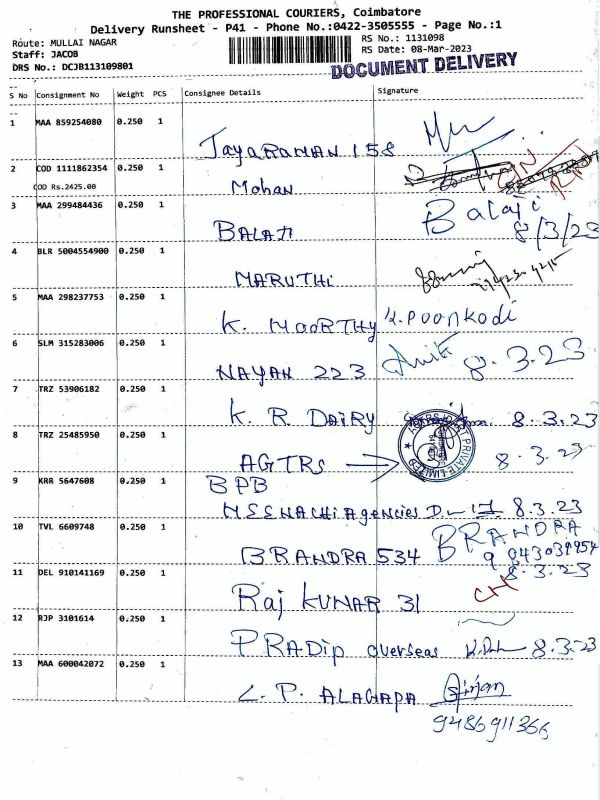 THE PROFESSIONAL COURIERS, Coimbatore
Delivery Runsheet - P41 - Phone No.:0422-3505555 - Page No.:1
Route: MULLAI NAGAR
Staff: JACOB
DRS No.: DCJB113109801
RS No.: 1131098
RS Date: 08-Mar-2023
DOCUMENT DELIVERY
S No Consignment No Weight PCS Consignee Details Signature
1 MAA 859254080 0.250 1
JayaRAMAN 158
2 COD 1111862354 0.250 1
COD Rs.2425.00
Mohan
3 MAA 299484436 0.250 1
BALAJI Balaji
8/3/23
4 BLR 5004554900 0.250 1
MARUTHi
5 MAA 298237753 0.250 1
K. MOORTHY K. Poonkodi
6 SLM 315283006 0.250 1
NAYAN 223 8.3.23
7 TRZ 53906182 0.250 1
K. R. DAiRY 8.3.23
8 TRZ 25485950 0.250 1
AGTRS 8.3.23
PRIVATE LIMITED
9 KRR 5647608 0.250 1
BPB
MEENACHi Agencies 8.3.23
10 TVL 6609748 0.250 1
BRANDRA 534 BRANDRA
8.3.23
11 DEL 910141169 0.250 1
Raj KUMAR 31
12 RJP 3101614 0.250 1
PRADip overseas 8.3.23
13 MAA 600042072 0.250 1
L. P. ALAGAPA
9486911366